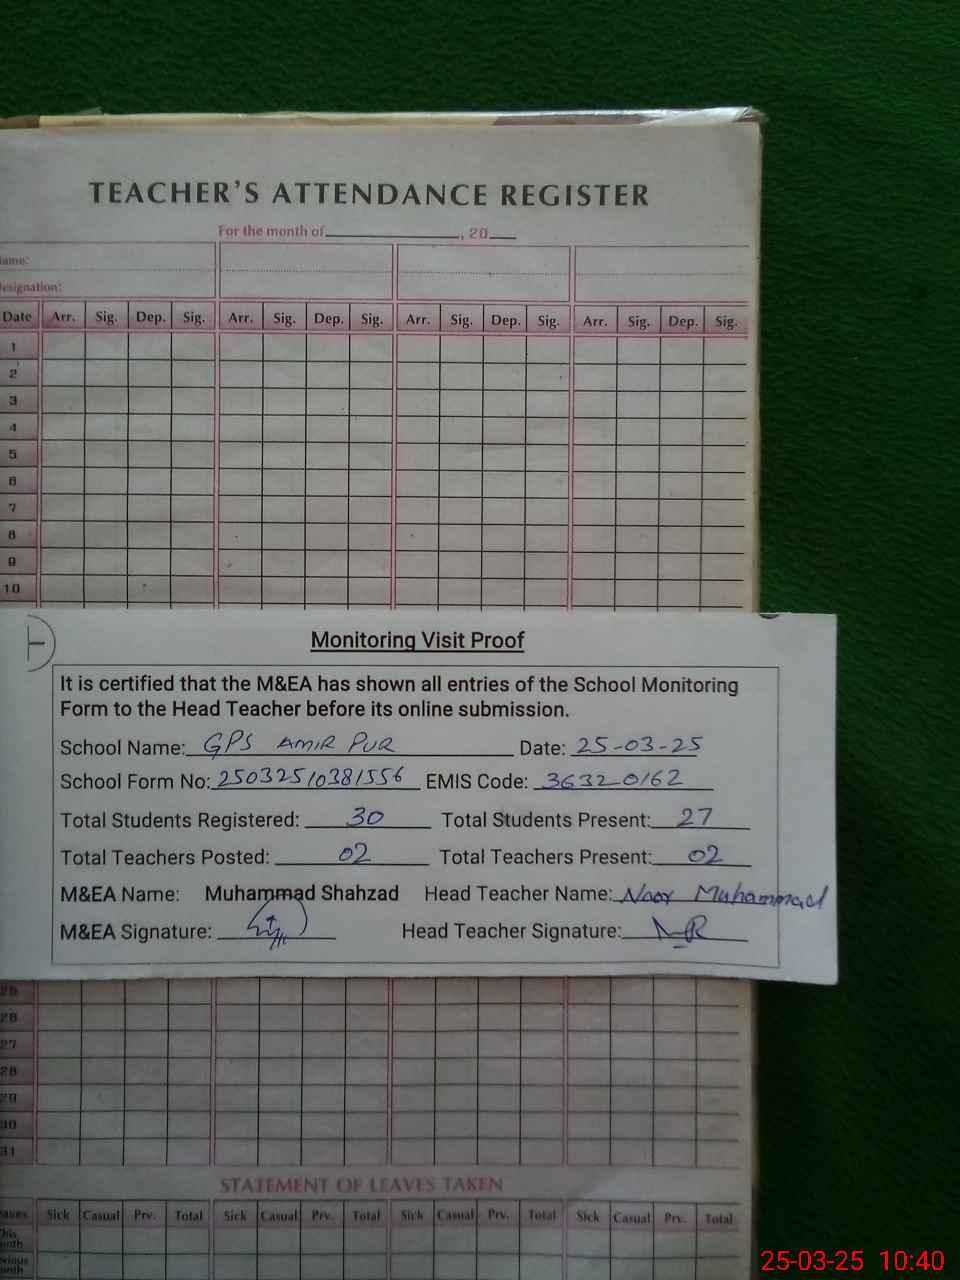 TEACHER'S ATTENDANCE REGISTER
For the month of , 20
ame:
esignation:
Date Arr. Sig. Dep. Sig. Arr. Sig. Dep. Sig. Arr. Sig. Dep. Sig. Arr. Sig. Dep. Sig.
1
2
3
4
5
6
7
8
9
10
Monitoring Visit Proof
It is certified that the M&EA has shown all entries of the School Monitoring
Form to the Head Teacher before its online submission.
School Name: GPS AMIR PUR Date: 25-03-25
School Form No: 25032510381556 EMIS Code: 36320162
Total Students Registered: 30 Total Students Present: 27
Total Teachers Posted: 02 Total Teachers Present: 02
M&EA Name: Muhammad Shahzad Head Teacher Name: Noor Muhammad
M&EA Signature: Head Teacher Signature:
25
26
27
28
29
30
31
STATEMENT OF LEAVES TAKEN
eaves Sick Casual Prv. Total Sick Casual Prv. Total Sick Casual Prv. Total Sick Casual Prv. Total
This
onth
evious
onth
25-03-25 10:40